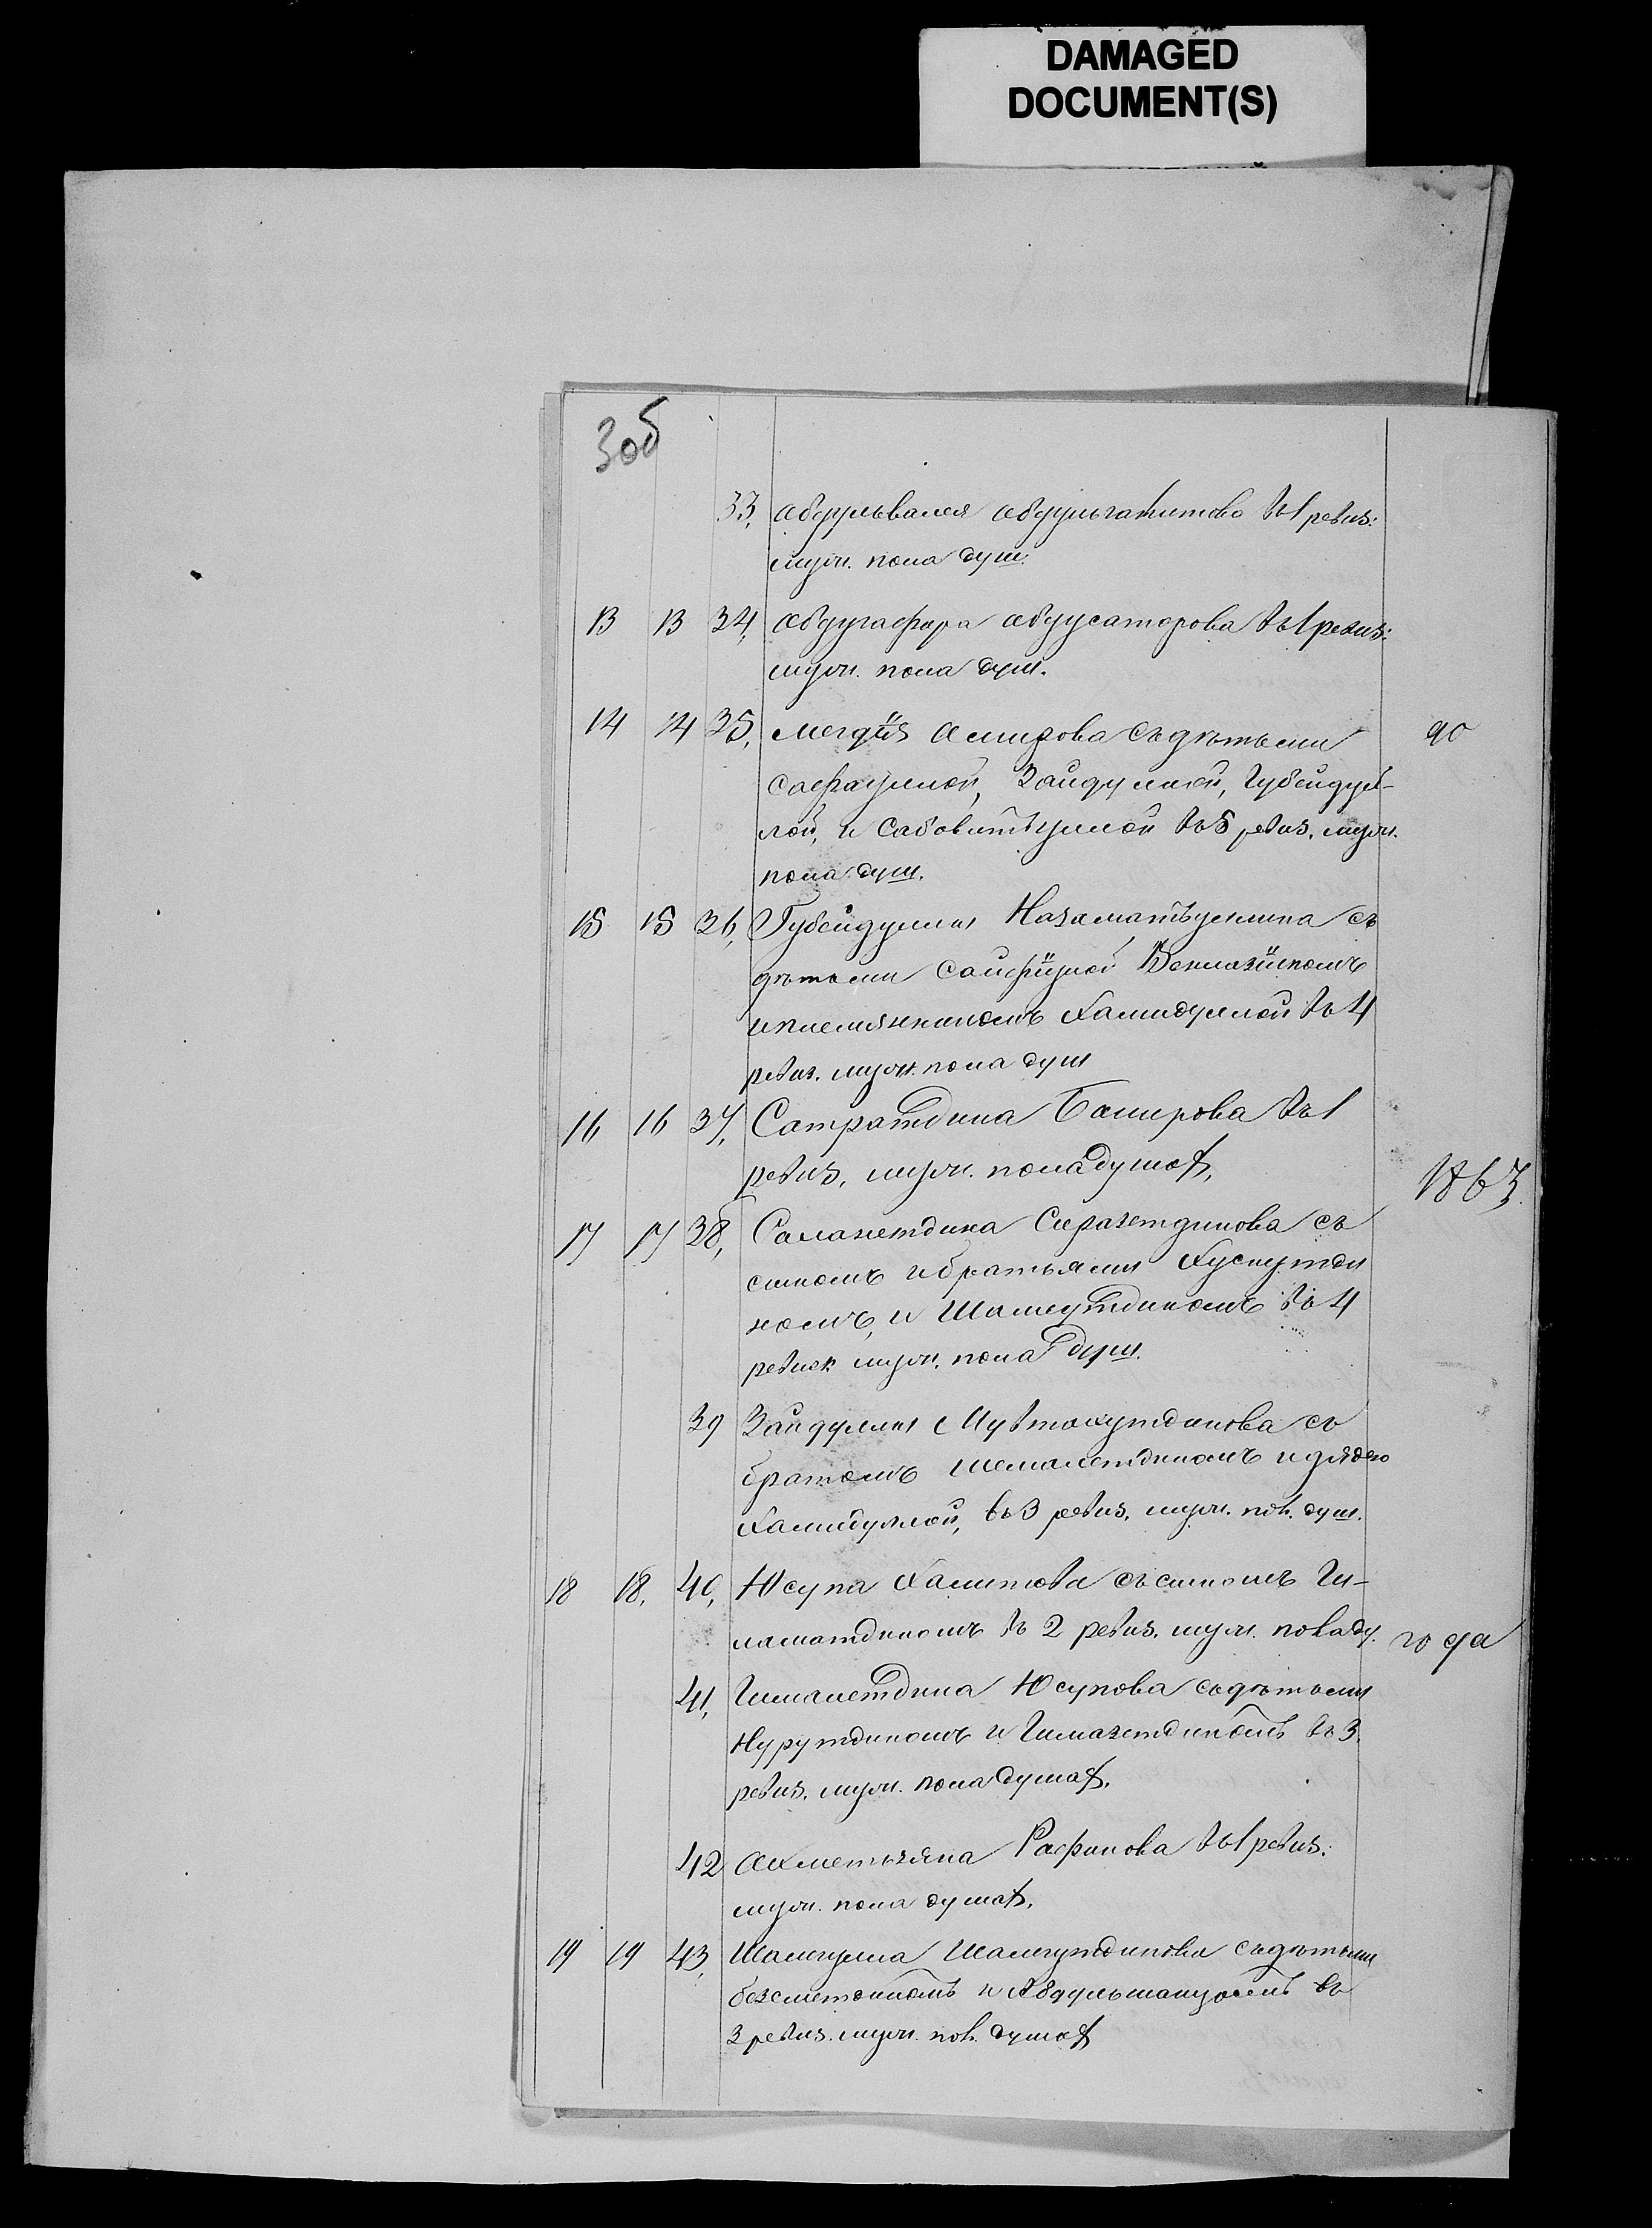 DAMAGED
DOCUMENT(S)
3об
33, Абдулвалея Абдульгатитова въ 1 ревиз:
муж. пола душ.
13 13 34, Абдугафара Абдусатарова въ 1 ревиз:
муж. пола душ.
14 14 35, Мегдія Амирова съ дѣтьми
90
Сафаулой, Зайдуллой, Губейдул-
лой, и въ 5 ревиз. муж.
пола душ.
15 15 36, Губейдуллы съ
дѣтьми
и племянникомъ Хамидуллой въ 4
ревиз. муж. пола душ
16 16 37, Сатратдина Баширова въ 1
ревиз. муж. пола душах,
1863
17 17 38, Салахетдина Сиразетдинова съ
сыномъ и братьями Хуснутди
номъ, и Шамсутдиномъ въ 4
ревиск муж. пола душ.
39 Зайдуллы съ
братомъ Шемалетдиномъ и дядею
Хамидуллой, въ 3 ревиз. муж. пол. душ.
18 18. 40, Юсупа Халитова съ сыномъ Ги-
маматдиномъ въ 2 ревиз. муж. пола ду.
года
41, Гималетдина Юсупова съ дѣтьми
Нурутдиномъ и Гимазетдиномъ въ 3
ревиз. муж. пола душах,
42 Ахметьзяна Рафикова въ 1 ревиз.
муж. пола душах,
19 19 43, Шамгулла Шамгутдинова съ дѣтьми
и въ
3 ревиз. муж. пол. душах